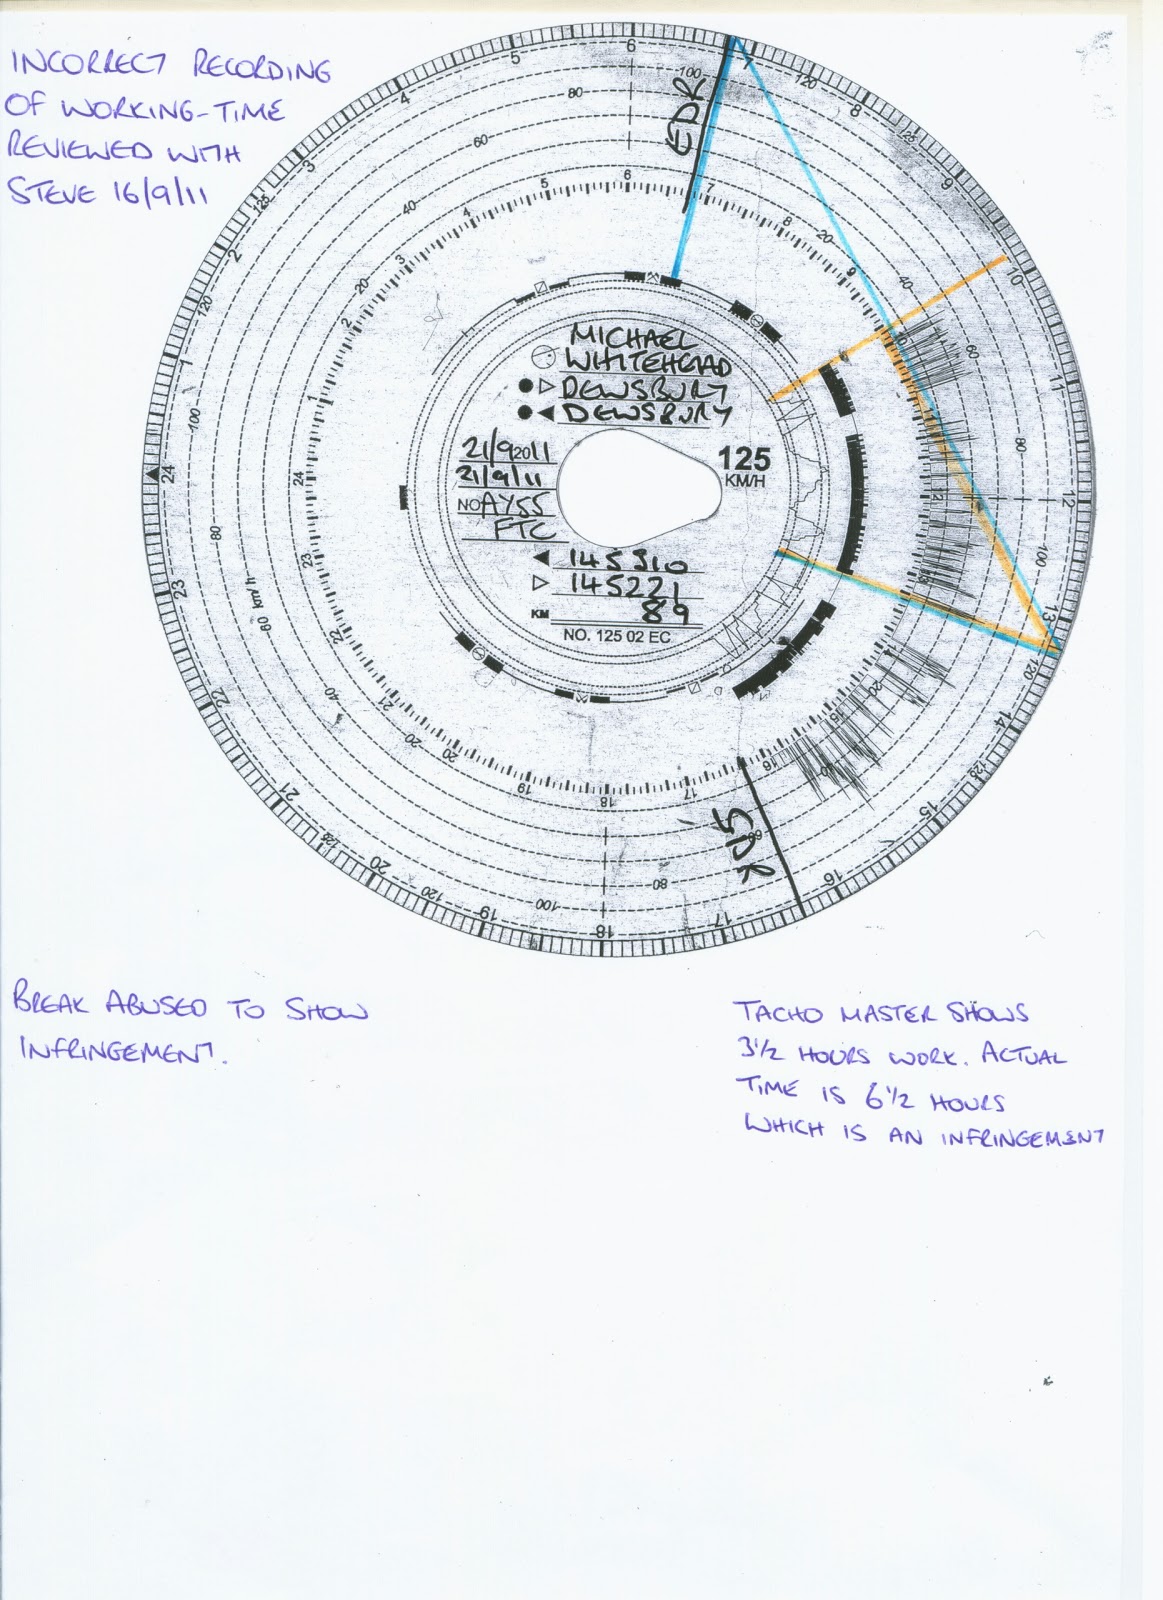 INCORRECT RECORDING
OF WORKING-TIME
REVIEWED WITH
STEVE 16/9/11
EDR
MICHAEL
WHITEHEAD
DEWSBURY
DEWSBURY
21/9/2011
21/9/11
NO AY55
FTC
125
KM/H
145310
145221
KM 89
NO. 125 02 EC
60 km/h
BREAK ABUSED TO SHOW
INFRINGEMENT.
TACHO MASTER SHOWS
3 1/2 HOURS WORK. ACTUAL
TIME IS 6 1/2 HOURS
WHICH IS AN INFRINGEMENT